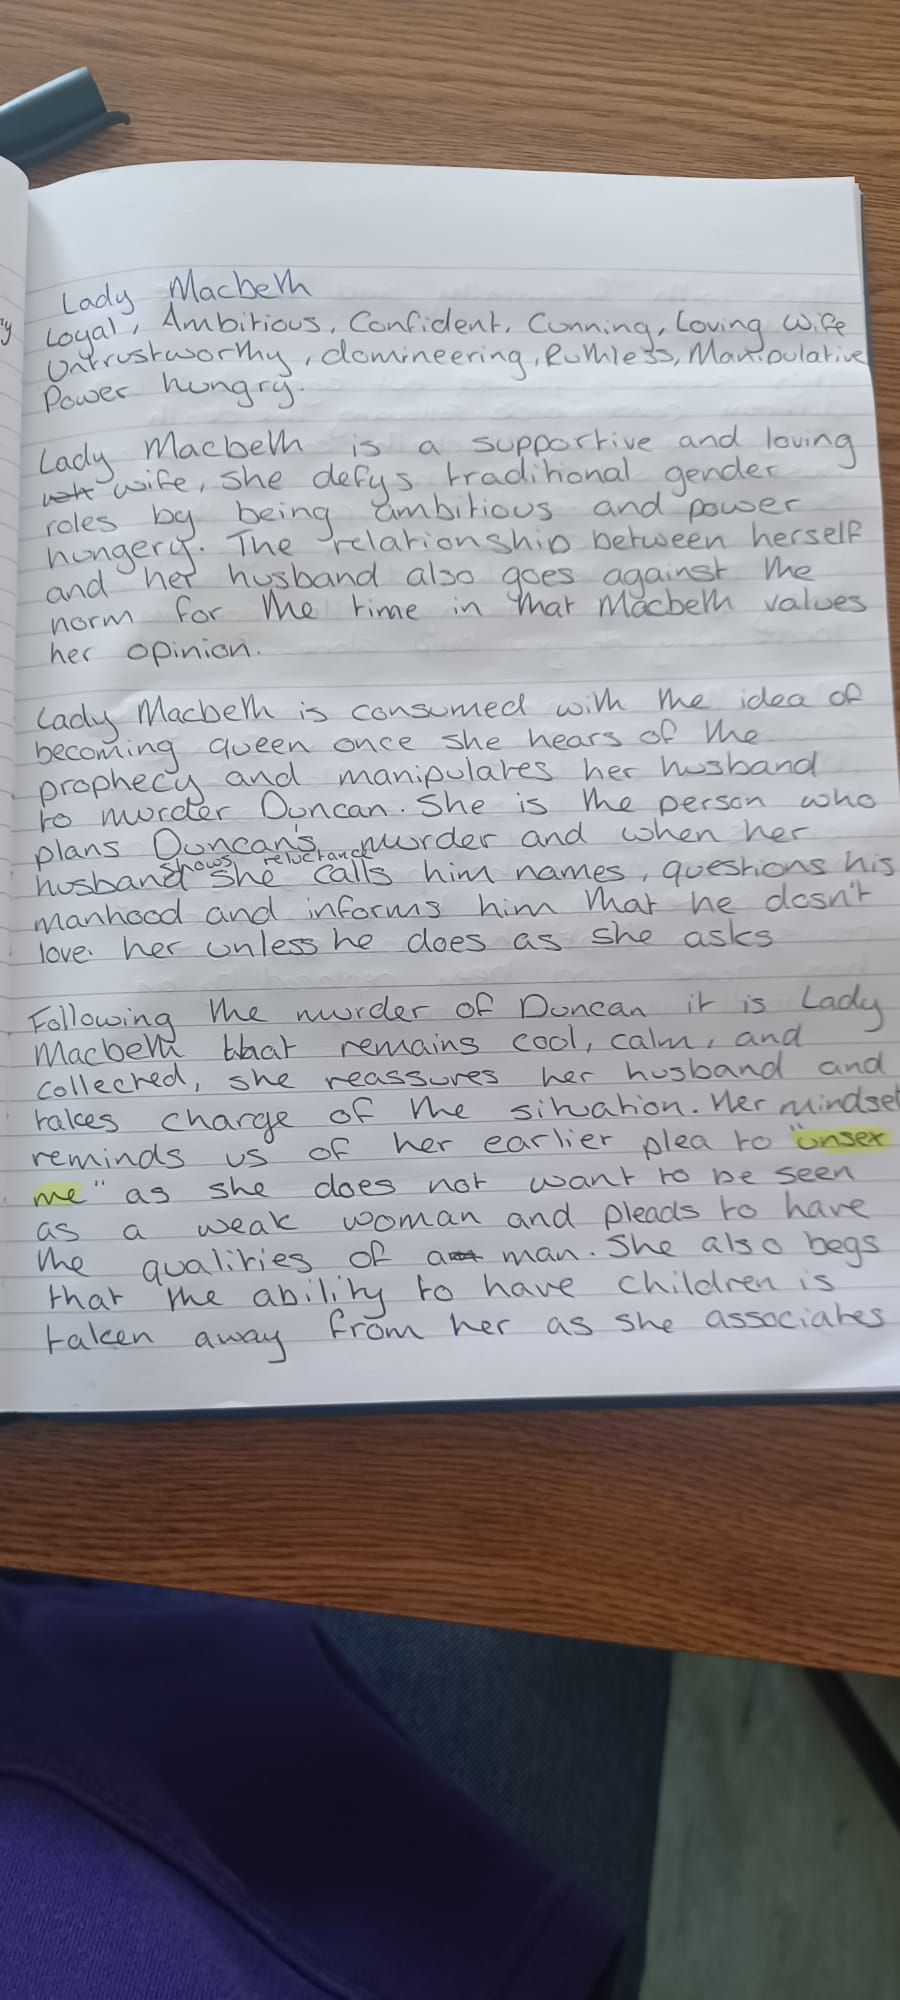 Lady Macbeth
Loyal, Ambitious, Confident, Cunning, Loving Wife
Untrustworthy, domineering, Ruthless, Manipulative
Power hungry.
Lady Macbeth is a supportive and loving
wife, she defys traditional gender
roles by being ambitious and power
hungery. The relationship between herself
and her husband also goes against the
norm for the time in that Macbeth values
her opinion.
Lady Macbeth is consumed with the idea of
becoming queen once she hears of the
prophecy and manipulates her husband
to murder Duncan. She is the person who
plans Duncan's murder and when her
husband shows reluctance she calls him names, questions his
manhood and informs him that he dosn't
love her unless he does as she asks
Following the murder of Duncan it is Lady
Macbeth that remains cool, calm, and
collected, she reassures her husband and
takes charge of the situation. Her mindset
reminds us of her earlier plea to "unsex
me" as she does not want to be seen
as a weak woman and pleads to have
the qualities of a man. She also begs
that the ability to have children is
taken away from her as she associates